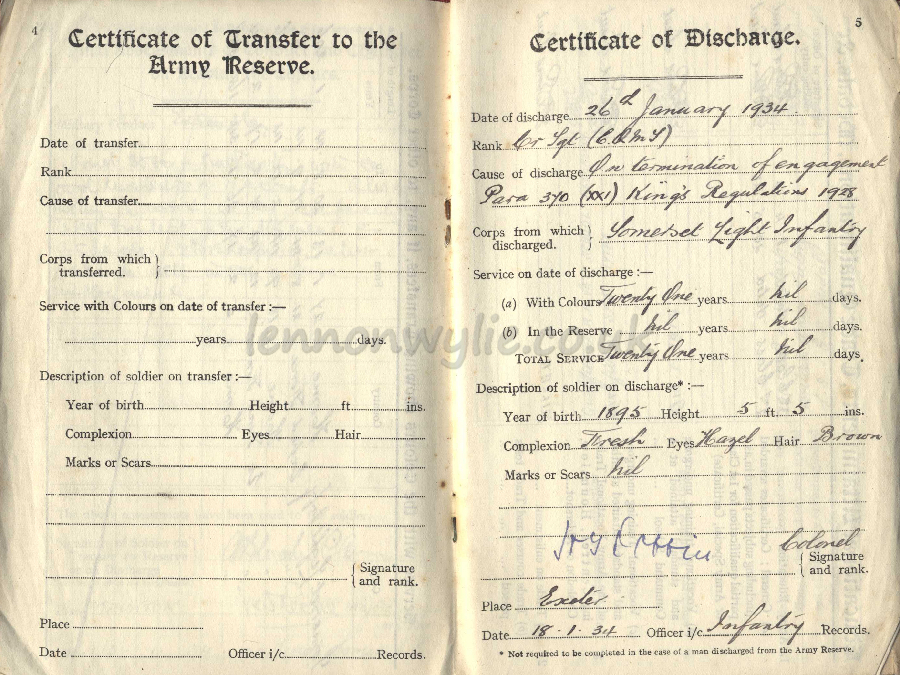 4
Certificate of Transfer to the
Army Reserve.
Date of transfer
Rank
Cause of transfer
Corps from which }
transferred.
Service with Colours on date of transfer :—
years days.
Description of soldier on transfer :—
Year of birth Height ft ins.
Complexion Eyes Hair
Marks or Scars
{ Signature
and rank.
Place
Date Officer i/c Records.
5
Certificate of Discharge.
Date of discharge 26th January 1934
Rank Cr Sgt (C.Q.M.S)
Cause of discharge On termination of engagement
Para 370 (XXI) King's Regulations 1928
Corps from which } Somerset Light Infantry
discharged.
Service on date of discharge :—
(a) With Colours Twenty One years nil days.
(b) In the Reserve nil years nil days.
TOTAL SERVICE Twenty One years nil days.
Description of soldier on discharge* :—
Year of birth 1895 Height 5 ft. 5 ins.
Complexion Fresh Eyes Hazel Hair Brown
Marks or Scars Nil
Colonel
{ Signature
and rank.
Place Exeter
Date 18.1.34 Officer i/c Infantry Records.
* Not required to be completed in the case of a man discharged from the Army Reserve.
lennonwylie.co.uk